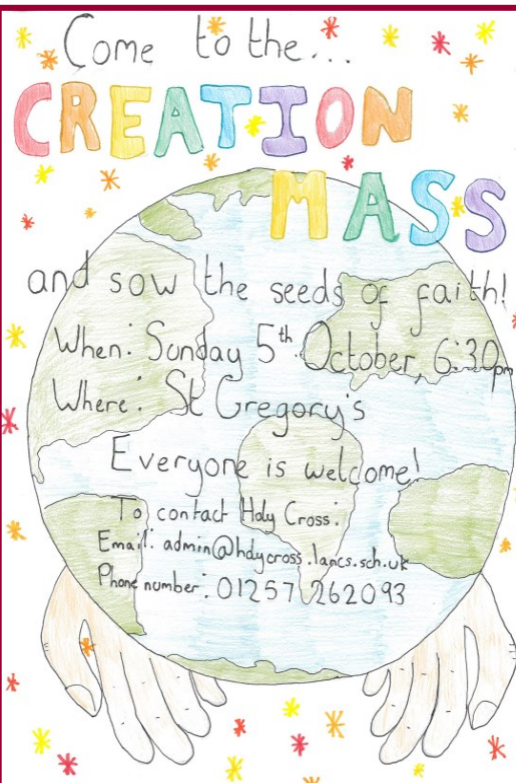 Come to the...
CREATION
MASS
and sow the seeds of faith!
When: Sunday 5th October, 6:30pm
Where: St Gregory's
Everyone is welcome!
To contact Holy Cross:
Email: admin@holycross.lancs.sch.uk
Phone number: 01257 262093